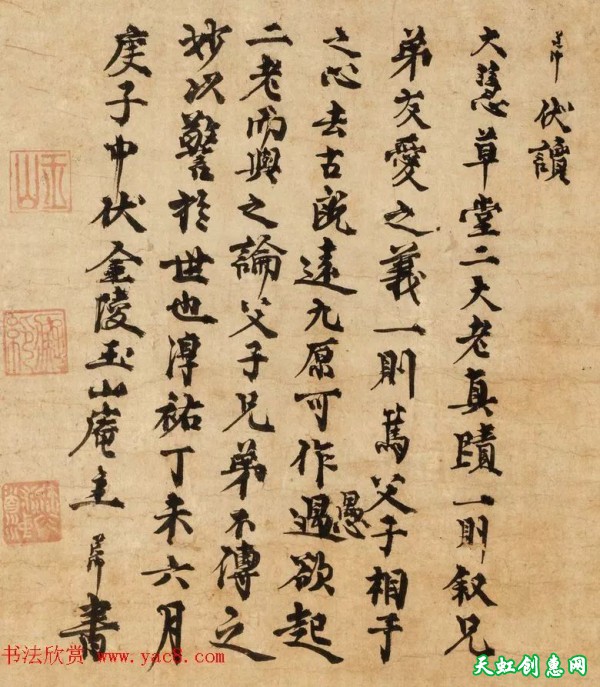 道冲 伏讀
大慧草堂二大老真蹟一則叙兄
弟友愛之義一則篤父子相予
之心去古既遠九原可作愚過欲起
二老而與之論父子兄弟不傳之
妙以警於世也淳祐丁未六月
庚子中伏金陵玉山庵主 道冲 書
玉山
书法欣赏 www.yac8.com
天虹创惠网